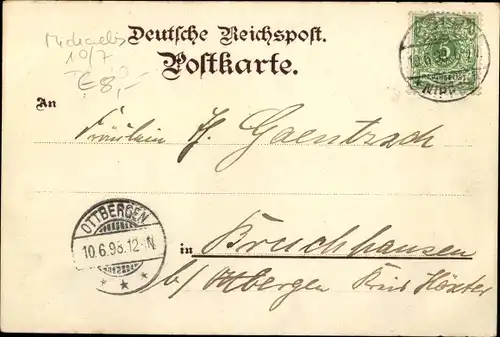 Michaelis
10/7
€ 8,-
Deutsche Reichspost.
Postkarte.
An
Fräulein H. Gaentzsch
OTTBERGEN
10.6.98.12-N
in Bruchhausen
b/ Ottbergen Kreis Höxter
5
NIPPES